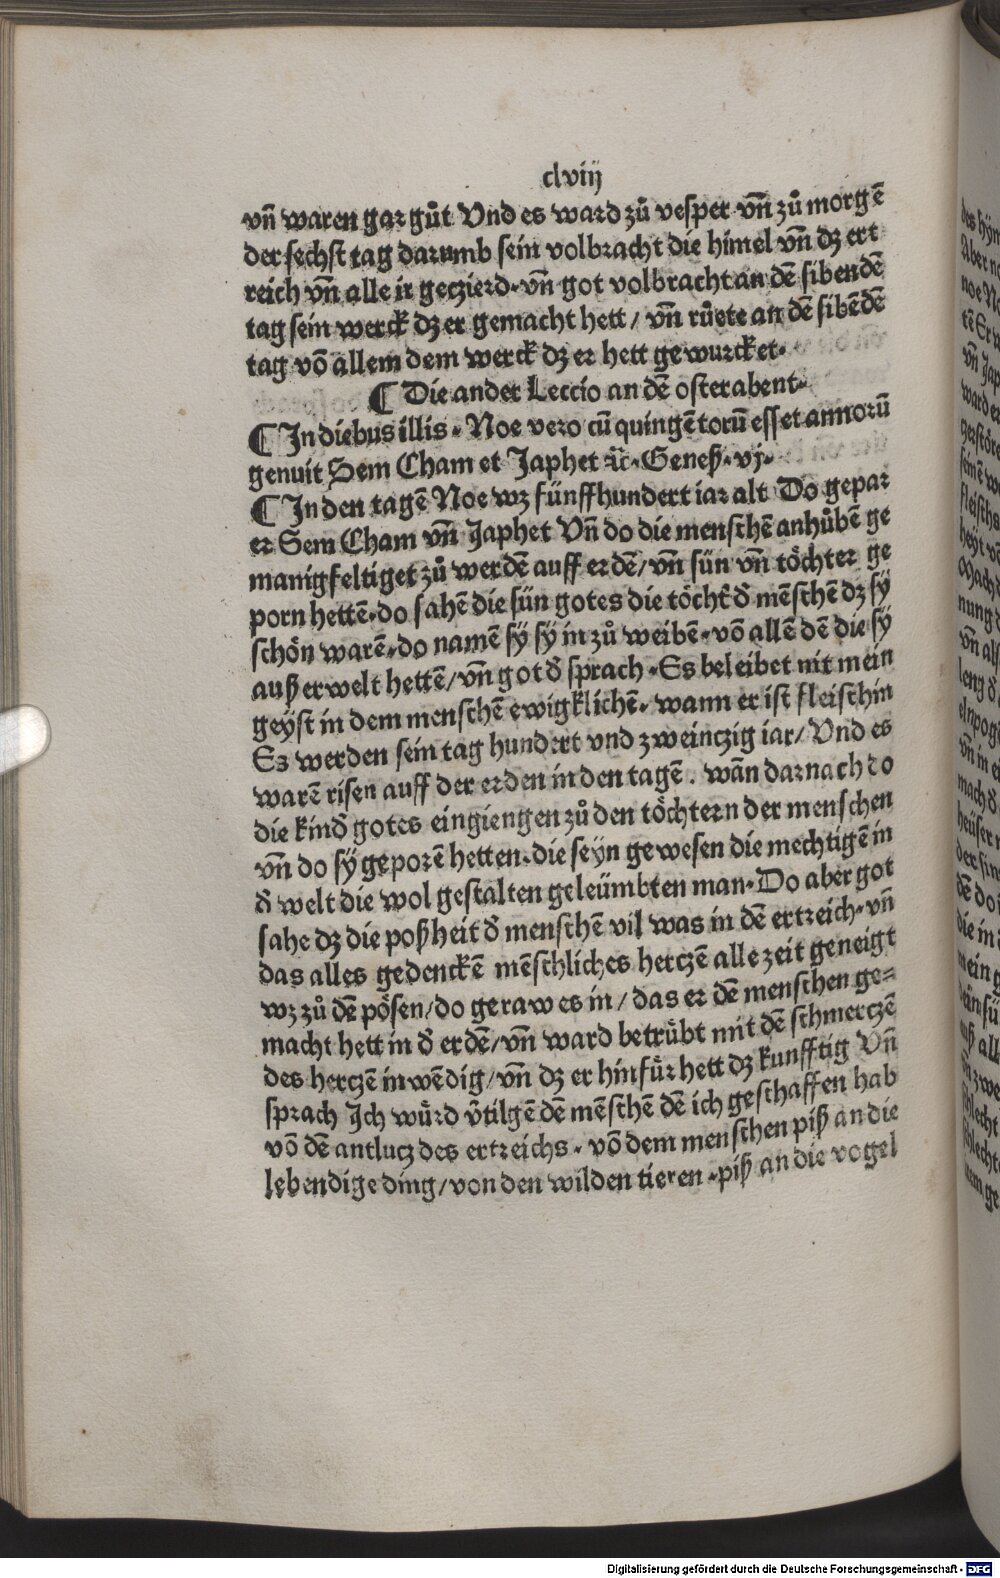 clviij
vñ waren gar gůt Vnd es ward zů vesper vñ zů morgē
der sechst tag darumb sein volbracht die himel vñ dz ert
reich vñ alle ir geczierd. vñ got volbracht an dē sibendē
tag sein werck dz er gemacht hett / vñ růete an dē sibēdē
tag vō allem dem werck dz er hett gewurcket.
¶ Die ander Leccio an dē osterabent.
¶ In diebus illis. Noe vero cū quingētorū esset annorū
genuit Sem Cham et Japhet ꝛc̄. Geneß. vj.
¶ In den tagē Noe wz fünffhundert iar alt Do gepar
er Sem Cham vñ Japhet Vñ do die menschē anhůbē ge
manigfeltiget zů werdē auff erdē/ vñ sün vñ töchter ge
porn hettē. do sahē die sün gotes die töcht̄ð mēschē dz sÿ
schön warē. do namē sÿ sÿ in zů weibē. vō allē dē die sÿ
außerwelt hettē/ vñ got ð sprach. Es beleibet nit mein
geÿst in dem menschē ewigklichē. wann er ist fleischin
Es werden sein tag hundert vnd zweinczig iar/ Vnd es
warē risen auff der erden in den tagē. wān darnach do
die kinð gotes eingiengen zů den töchtern der menschen
vñ do sÿ geporē hetten. die seyn gewesen die mechtigē in
ð welt die wol gestalten geleümbten man. Do aber got
sahe dz die poßheit ð menschē vil was in dē ertreich. vñ
das alles gedenckē mēschliches herczē alle zeit geneigt
wz zů dē pösen/ do geraw es in / das er dē menschen ge=
macht hett in ð erdē/ vñ ward betrůbt mit dē schmerczē
des herczē inwēdig/ vñ dz er hinfür hett dz kunfftig Vñ
sprach Ich würd v̄tilgē dē mēschē dē ich geschaffen hab
vō dē antlucz des ertreichs. vō dem menschen piß an die
lebendige ding/ von den wilden tieren. piß an die vogel
Digitalisierung gefördert durch die Deutsche Forschungsgemeinschaft - DFG